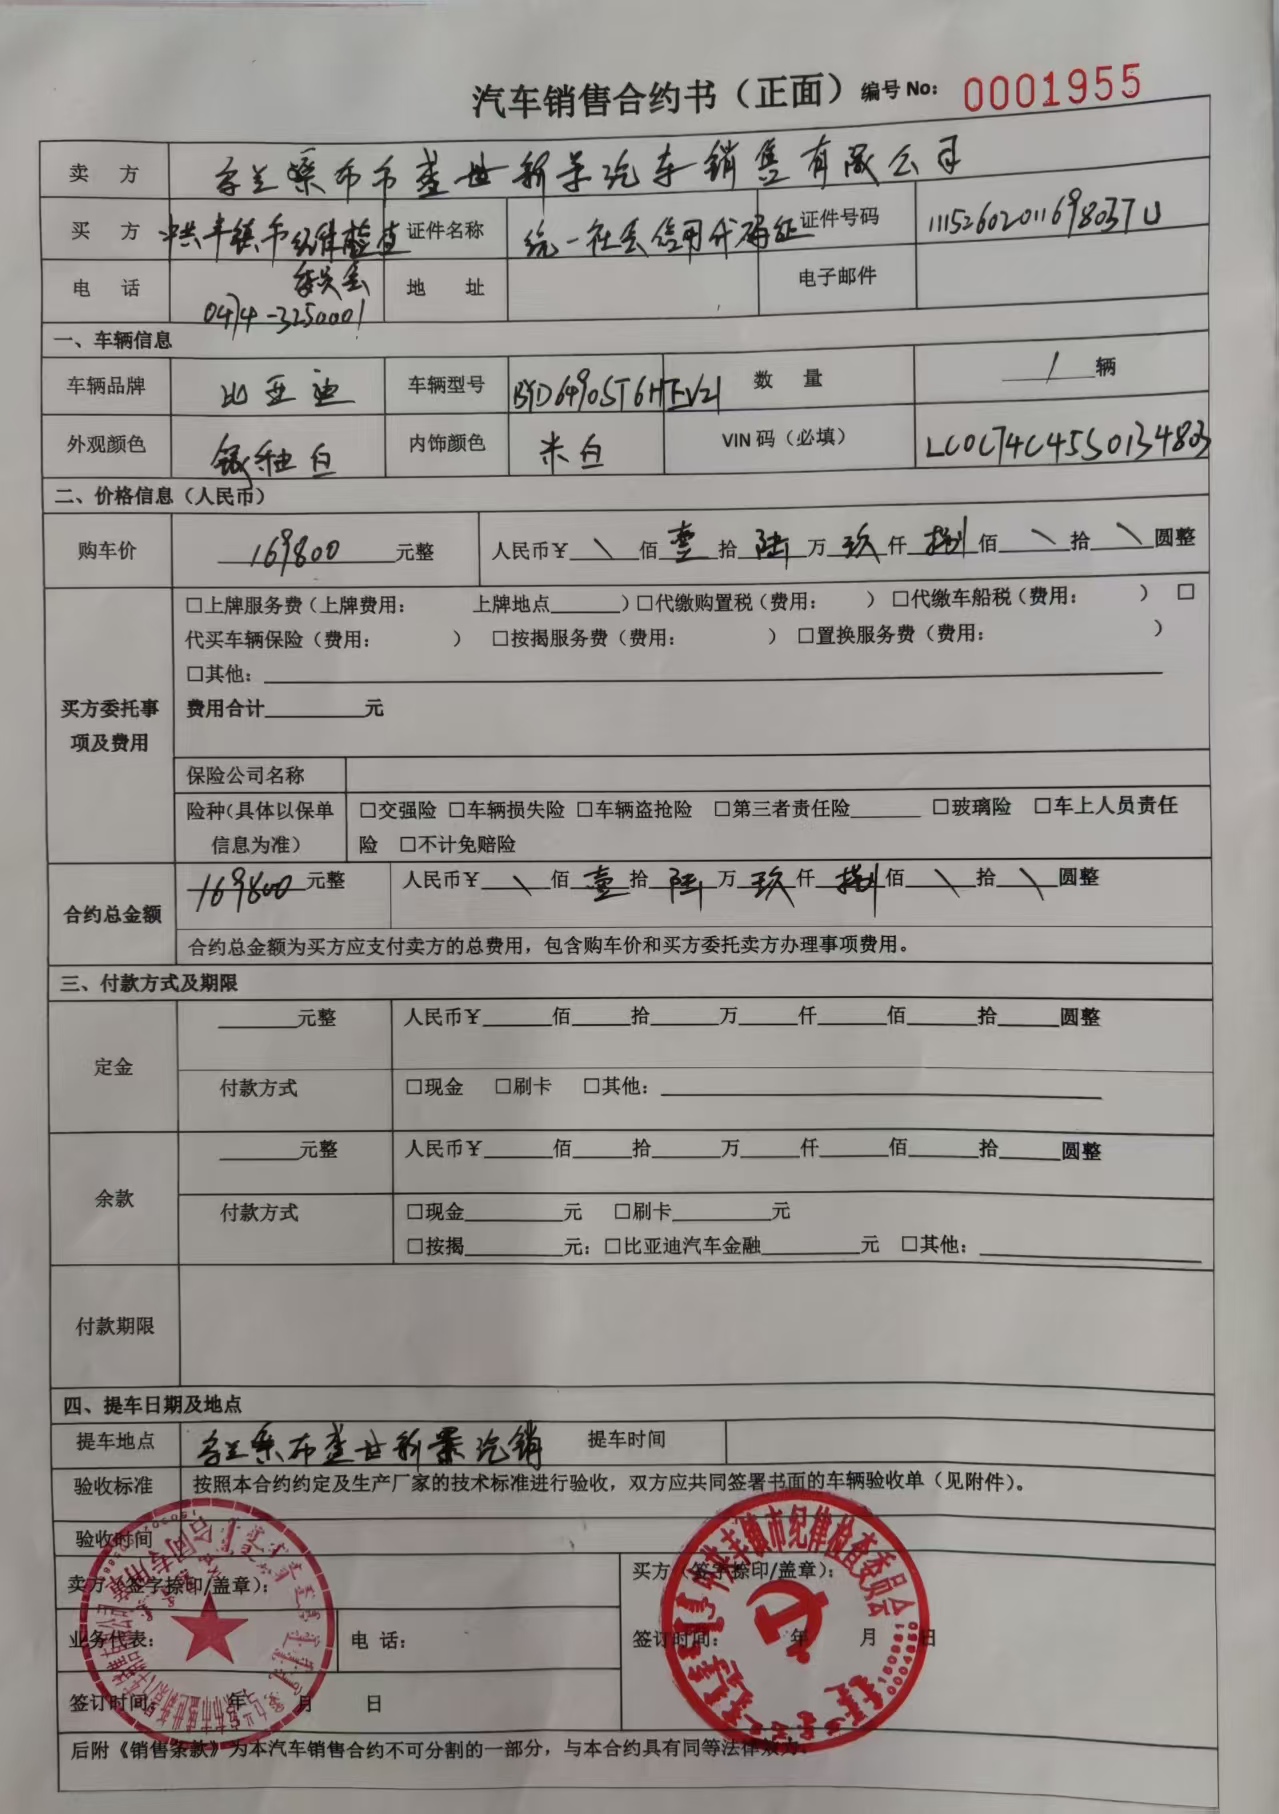 汽车销售合约书（正面）编号 No: 0001955
卖 方 乌兰察布市盛世新景汽车销售有限公司
买 方 中共丰镇市纪律检查委员会 证件名称 统一社会信用代码证 证件号码 11152602011698037U
电 话 0474-3250001 地 址 电子邮件
一、车辆信息
车辆品牌 比亚迪 车辆型号 BYD6490ST6HTEV21 数 量 1 辆
外观颜色 釉白 内饰颜色 米白 VIN 码（必填） LC0C74C45S0134803
二、价格信息（人民币）
购车价 169800 元整 人民币￥ \ 佰 壹 拾 陆 万 玖 仟 捌 佰 \ 拾 \ 圆整
买方委托事项及费用
□上牌服务费（上牌费用： 上牌地点______）□代缴购置税（费用： ） □代缴车船税（费用： ） □
代买车辆保险（费用： ） □按揭服务费（费用： ） □置换服务费（费用： ）
□其他：
费用合计________元
保险公司名称
险种（具体以保单信息为准） □交强险 □车辆损失险 □车辆盗抢险 □第三者责任险______ □玻璃险 □车上人员责任
险 □不计免赔险
合约总金额 169800 元整 人民币￥ \ 佰 壹 拾 陆 万 玖 仟 捌 佰 \ 拾 \ 圆整
合约总金额为买方应支付卖方的总费用，包含购车价和买方委托卖方办理事项费用。
三、付款方式及期限
定金 ______元整 人民币￥_____佰_____拾_____万_____仟_____佰_____拾_____圆整
付款方式 □现金 □刷卡 □其他：
余款 ______元整 人民币￥_____佰_____拾_____万_____仟_____佰_____拾_____圆整
付款方式 □现金________元 □刷卡________元
□按揭________元；□比亚迪汽车金融________元 □其他：
付款期限
四、提车日期及地点
提车地点 乌兰察布盛世新景汽销 提车时间
验收标准 按照本合约约定及生产厂家的技术标准进行验收，双方应共同签署书面的车辆验收单（见附件）。
验收时间
卖方（签字捺印/盖章）： 买方（签字捺印/盖章）：
业务代表： 电 话： 签订时间： 年 月 日
签订时间： 年 月 日
合同专用章
中共丰镇市纪律检查委员会
后附《销售条款》为本汽车销售合约不可分割的一部分，与本合约具有同等法律效力。